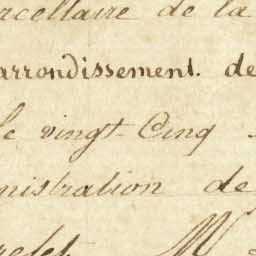 rcellaire de la
arrondissement. de
le vingt-Cinq
nistration de